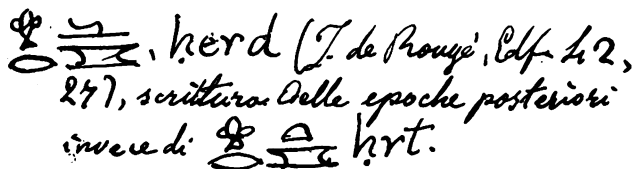 , ḥerd (J. de Rougé, Edf.
scrittura delle epoche posteriori
invece di ḥrt.